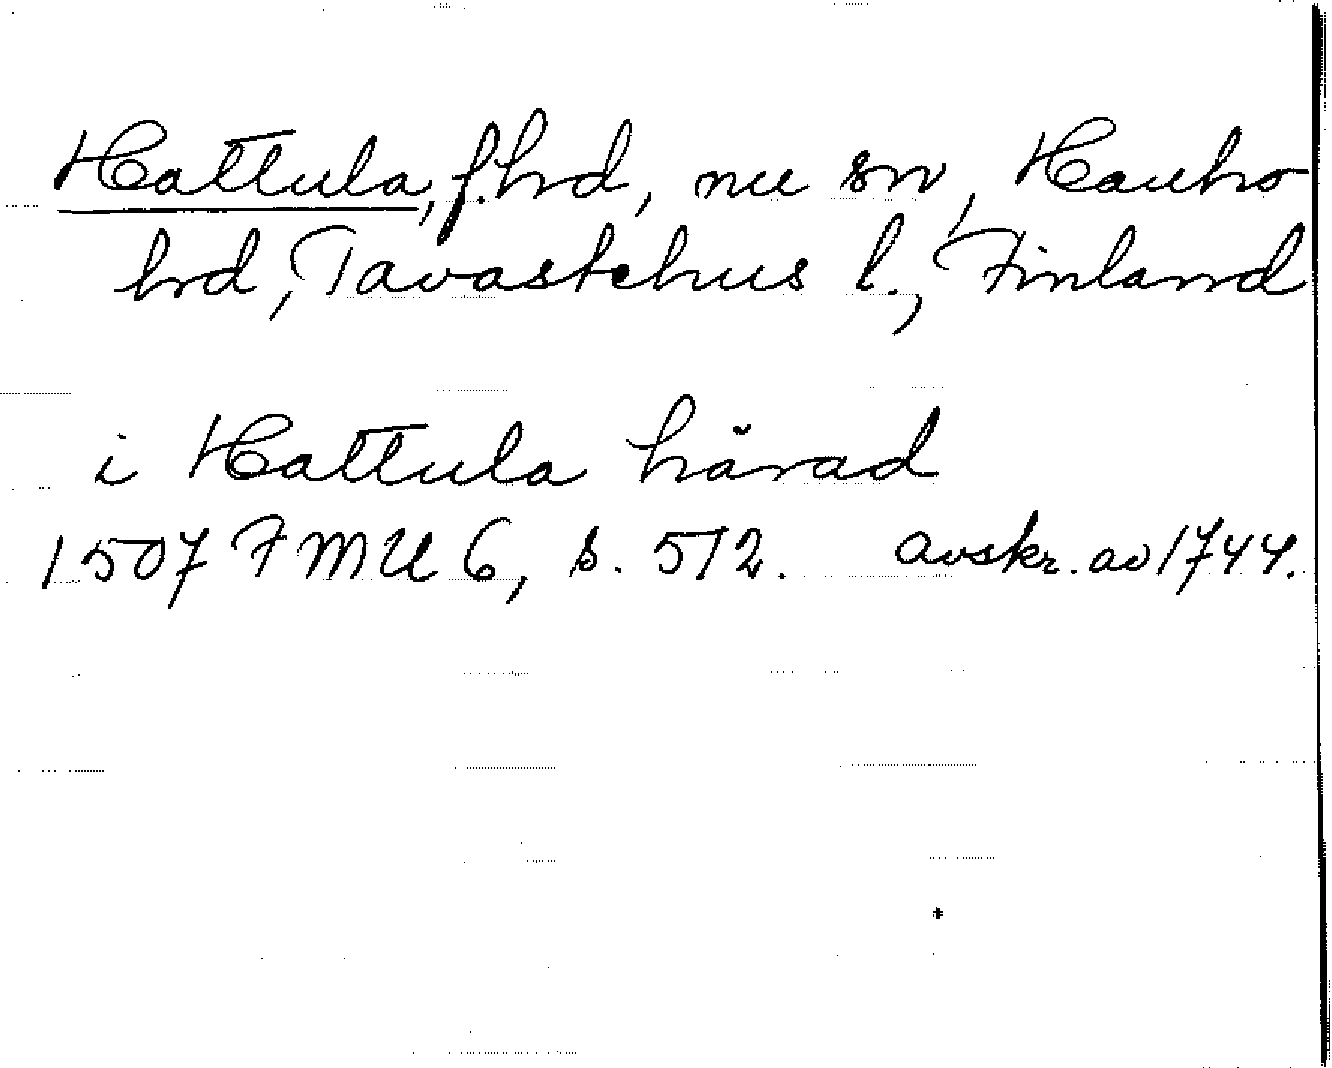 Hattula, f. hrd, nu sn, Hauho
hrd, Tavastehus l., Finland
i Hattula härad
1507 FMU 6, s. 512. avskr. av 1744.